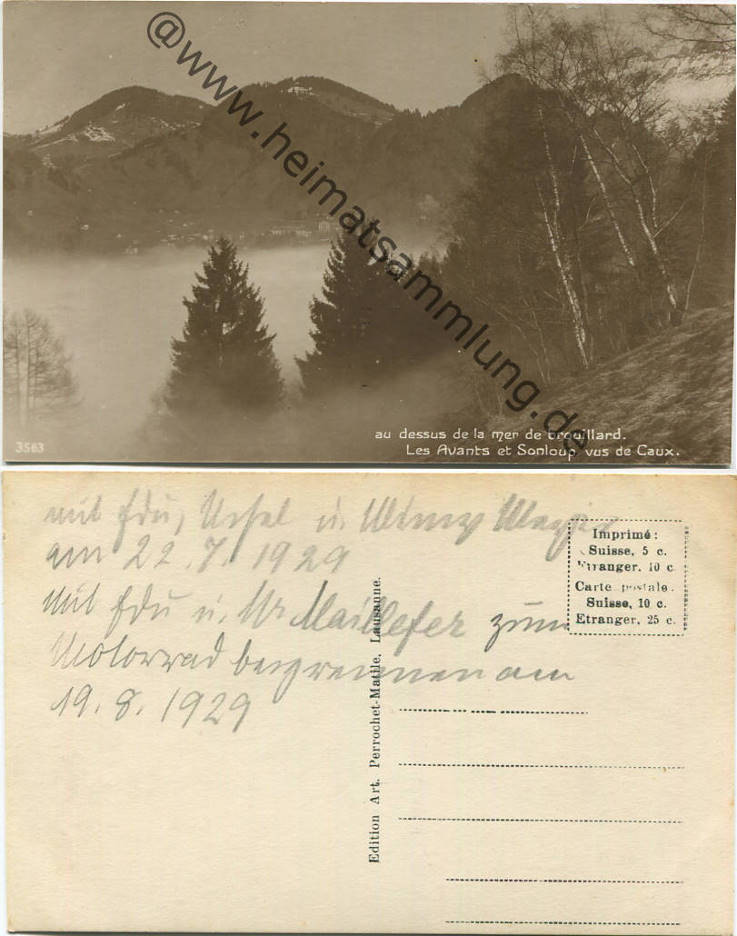 @www.heimatsammlung.de
3563
au dessus de la mer de brouillard.
Les Avants et Sonloup vus de Caux.
mit Edu, Ursel u.
am 22.7.1929
mit Edu u. Mr Maillefer zum
Motorradbergrennen am
19.8.1929
Imprimé:
Suisse, 5 c.
Etranger, 10 c.
Carte postale:
Suisse, 10 c.
Etranger, 25 c.
Edition Art. Perrochet-Matile, Lausanne.